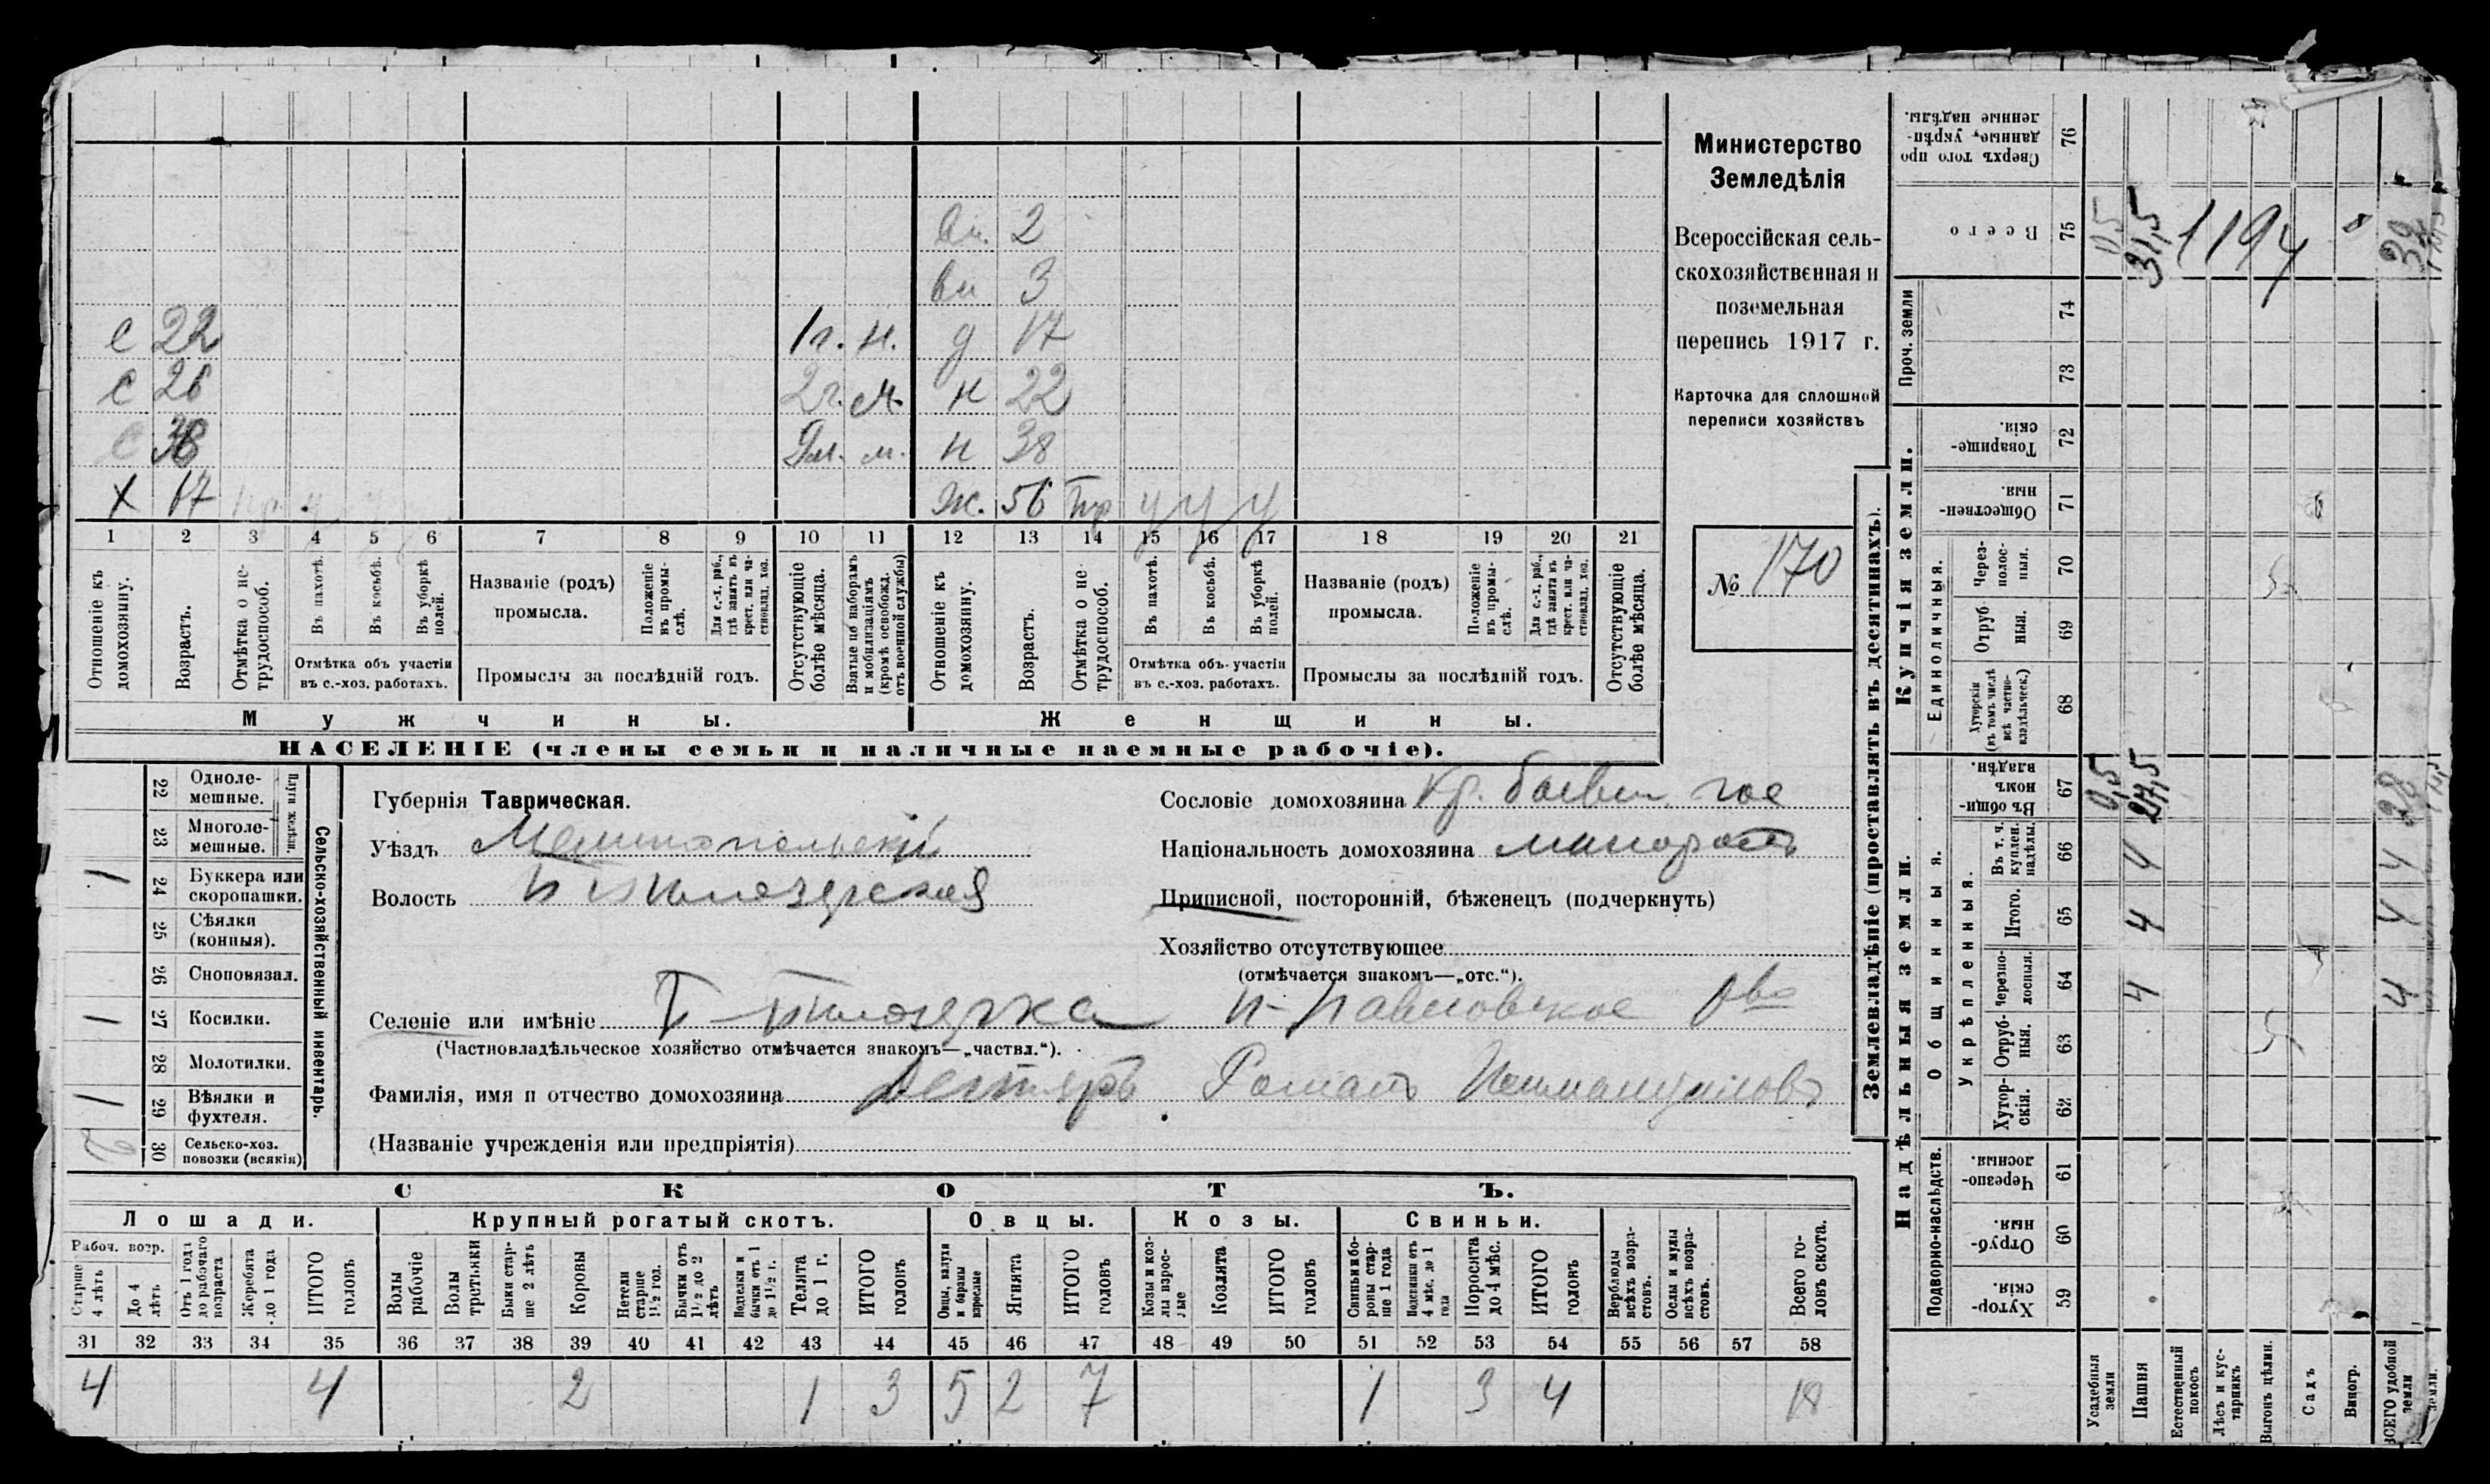 Министерство
Земледѣлія
Всероссійская сель-
скохозяйственная и
поземельная
перепись 1917 г.
Карточка для сплошной
переписи хозяйствъ
№ 170
2
3
с 22 1 г. н. д 17
с 26 2 г. м. н 22
с м. н 38
х 17 ж. 56 пр у у у
1 2 3 4 5 6 7 8 9 10 11 12 13 14 15 16 17 18 19 20 21
Отношеніе къ домохозяину.
Возрастъ.
Отмѣтка о не-трудоспособ.
Въ пахотѣ.
Въ косьбѣ.
Въ уборкѣ полей.
Отмѣтка объ участіи
въ с.-хоз. работахъ.
Названіе (родъ)
промысла.
Положеніе въ промы-слѣ.
Для с.-х. раб., гдѣ занятъ въ крест. или ча-стновлад. хоз.
Промыслы за послѣдній годъ.
Отсутствующіе болѣе мѣсяца.
Взятые по наборамъ и мобилизаціямъ (кромѣ освобожд. отъ военной службы)
Отношеніе къ домохозяину.
Возрастъ.
Отмѣтка о не-трудоспособ.
Въ пахотѣ.
Въ косьбѣ.
Въ уборкѣ полей.
Отмѣтка объ участіи
въ с.-хоз. работахъ.
Названіе (родъ)
промысла.
Положеніе въ промы-слѣ.
Для с.-х. раб., гдѣ занята въ крест. или ча-стновлад. хоз.
Промыслы за послѣдній годъ.
Отсутствующіе болѣе мѣсяца.
Мужчины. Женщины.
НАСЕЛЕНІЕ (члены семьи и наличные наемные рабочіе).
Сельско-хозяйственный инвентарь.
Плуги желѣзн.
22 Одноле-мешные.
23 Многоле-мешные.
1 24 Буккера или скоропашки.
25 Сѣялки (конныя).
26 Сноповязал.
1 27 Косилки.
28 Молотилки.
1 29 Вѣялки и фухтеля.
30 Сельско-хоз. повозки (всякія)
Губернія Таврическая.
Уѣздъ Мелитопольскій
Волость
Сословіе домохозяина кр.
Національность домохозяина малороссъ
Приписной, посторонній, бѣженецъ (подчеркнуть)
Хозяйство отсутствующее
(отмѣчается знакомъ—„отс.“).
Селеніе или имѣніе
(Частновладѣльческое хозяйство отмѣчается знакомъ—„частвл.“).
Фамилія, имя и отчество домохозяина Дегтярь Романъ
(Названіе учрежденія или предпріятія)
СКОТЪ.
Лошади. Крупный рогатый скотъ. Овцы. Козы. Свиньи.
Рабоч. возр.
Старше 4 лѣтъ
До 4 лѣтъ
Отъ 1 года до рабочаго возраста
Жеребята до 1 года
ИТОГО головъ
Волы рабочіе
Волы третьяки
Быки стар-ше 2 лѣтъ
Коровы
Нетели старше 1½ год.
Бычки отъ 1½ до 2 лѣтъ
Подтелки и бычки отъ 1 до 1½ г.
Телята до 1 г.
ИТОГО головъ
Овцы, валухи и бараны взрослые
Ягнята
ИТОГО головъ
Козы и коз-лы взрос-лые
Козлята
ИТОГО головъ
Свиньи и бо-ровы стар-ше 1 года
Подсвинки отъ 4 мѣс. до 1 года
Поросята до 4 мѣс.
ИТОГО головъ
Верблюды всѣхъ возра-стовъ.
Ослы и мулы всѣхъ возра-стовъ.
Всего го-ловъ скота.
31 32 33 34 35 36 37 38 39 40 41 42 43 44 45 46 47 48 49 50 51 52 53 54 55 56 57 58
4 4 2 1 3 5 2 7 1 3 4 18
Землевладѣніе (проставлять въ десятинахъ).
Сверхъ того про-данные, укрѣп-ленные надѣлы. 76
Всего 75 0,5 31,5 32
Проч. земли 74
73
Купчія земли.
Товарище-скія. 72
Обществен-ныя. 71
Единоличныя.
Через-полос-ныя. 70
Отруб-ныя. 69
Хуторскія (въ томъ числѣ всѣ частно-владѣльческ.) 68
Надѣльныя земли.
Общинныя.
Въ общин-номъ владѣн. 67 0,5 27,5 28
Укрѣпленныя.
Въ т. ч. куплен. надѣлы. 66 4 4
Итого. 65 4 4
Черезпо-лосныя. 64 4 4
Отруб-ныя. 63
Хутор-скія. 62
Подворно-наслѣдств.
Черезпо-лосныя. 61
Отруб-ныя. 60
Хутор-скія. 59
Усадебныя земли
Пашня
Естественный покосъ
Лѣсъ и кус-тарникъ
Выгонъ цѣлин.
Садъ
Виногр.
ВСЕГО удобной земли
земли.